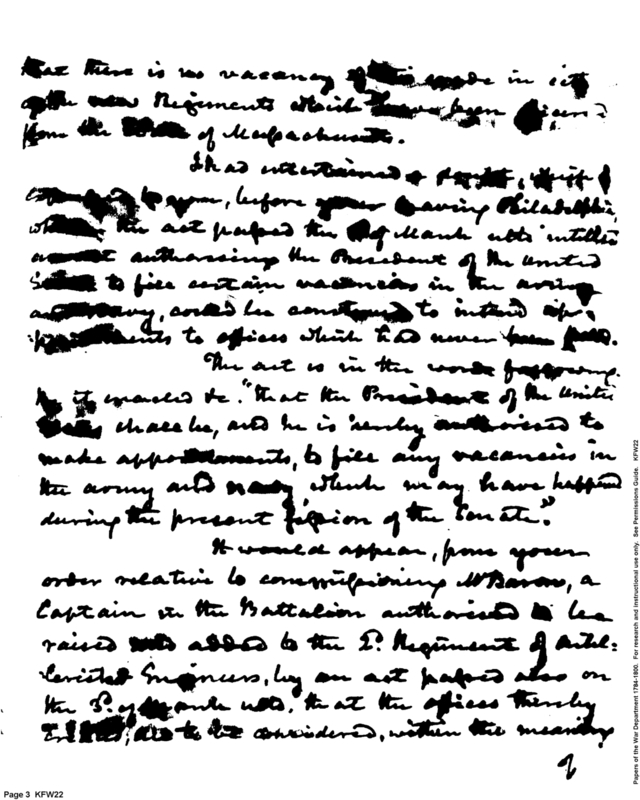 that there is no vacancy of this grade in
of the new Regiments which have been
from the of Massachusetts.
I had entertained a doubt,
to you, before your leaving Philadelphia,
the act passed the of March ulto intitled
an act authorising the President of the United
States to fill certain vacancies in the army
and navy, could be construed to intend ap-
pointments to offices which had never been
The act is in the words following.
Be it enacted &c. "that the President of the United
States shall be, and he is hereby authorised to
make appointments, to fill any vacancies in
the army and navy, which may have happend
during the present session of the Senate."
It would appear, from your
order relative to commissioning Mr Baron, a
Captain in the Battalion authorised to be
raised and added to the 2d. Regiment of Artil-
lerists & Engineers, by an act passed also on
the 3d. of March ulto. that the offices thereby
are to be considered, within the meaning
Page 3 KFW22
Papers of the War Department 1784-1800. For research and instructional use only. See Permissions Guide. KFW22